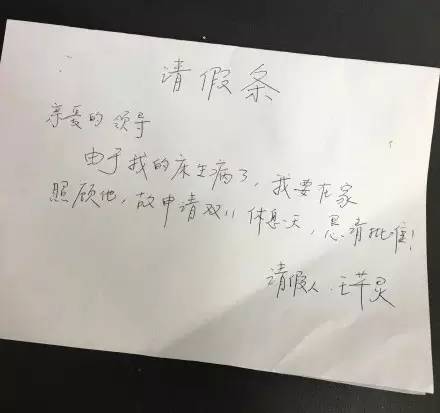 请假条
亲爱的领导
由于我的床生病了，我要在家
照顾他，故申请双11休息一天，恳请批准！
请假人：王芊灵